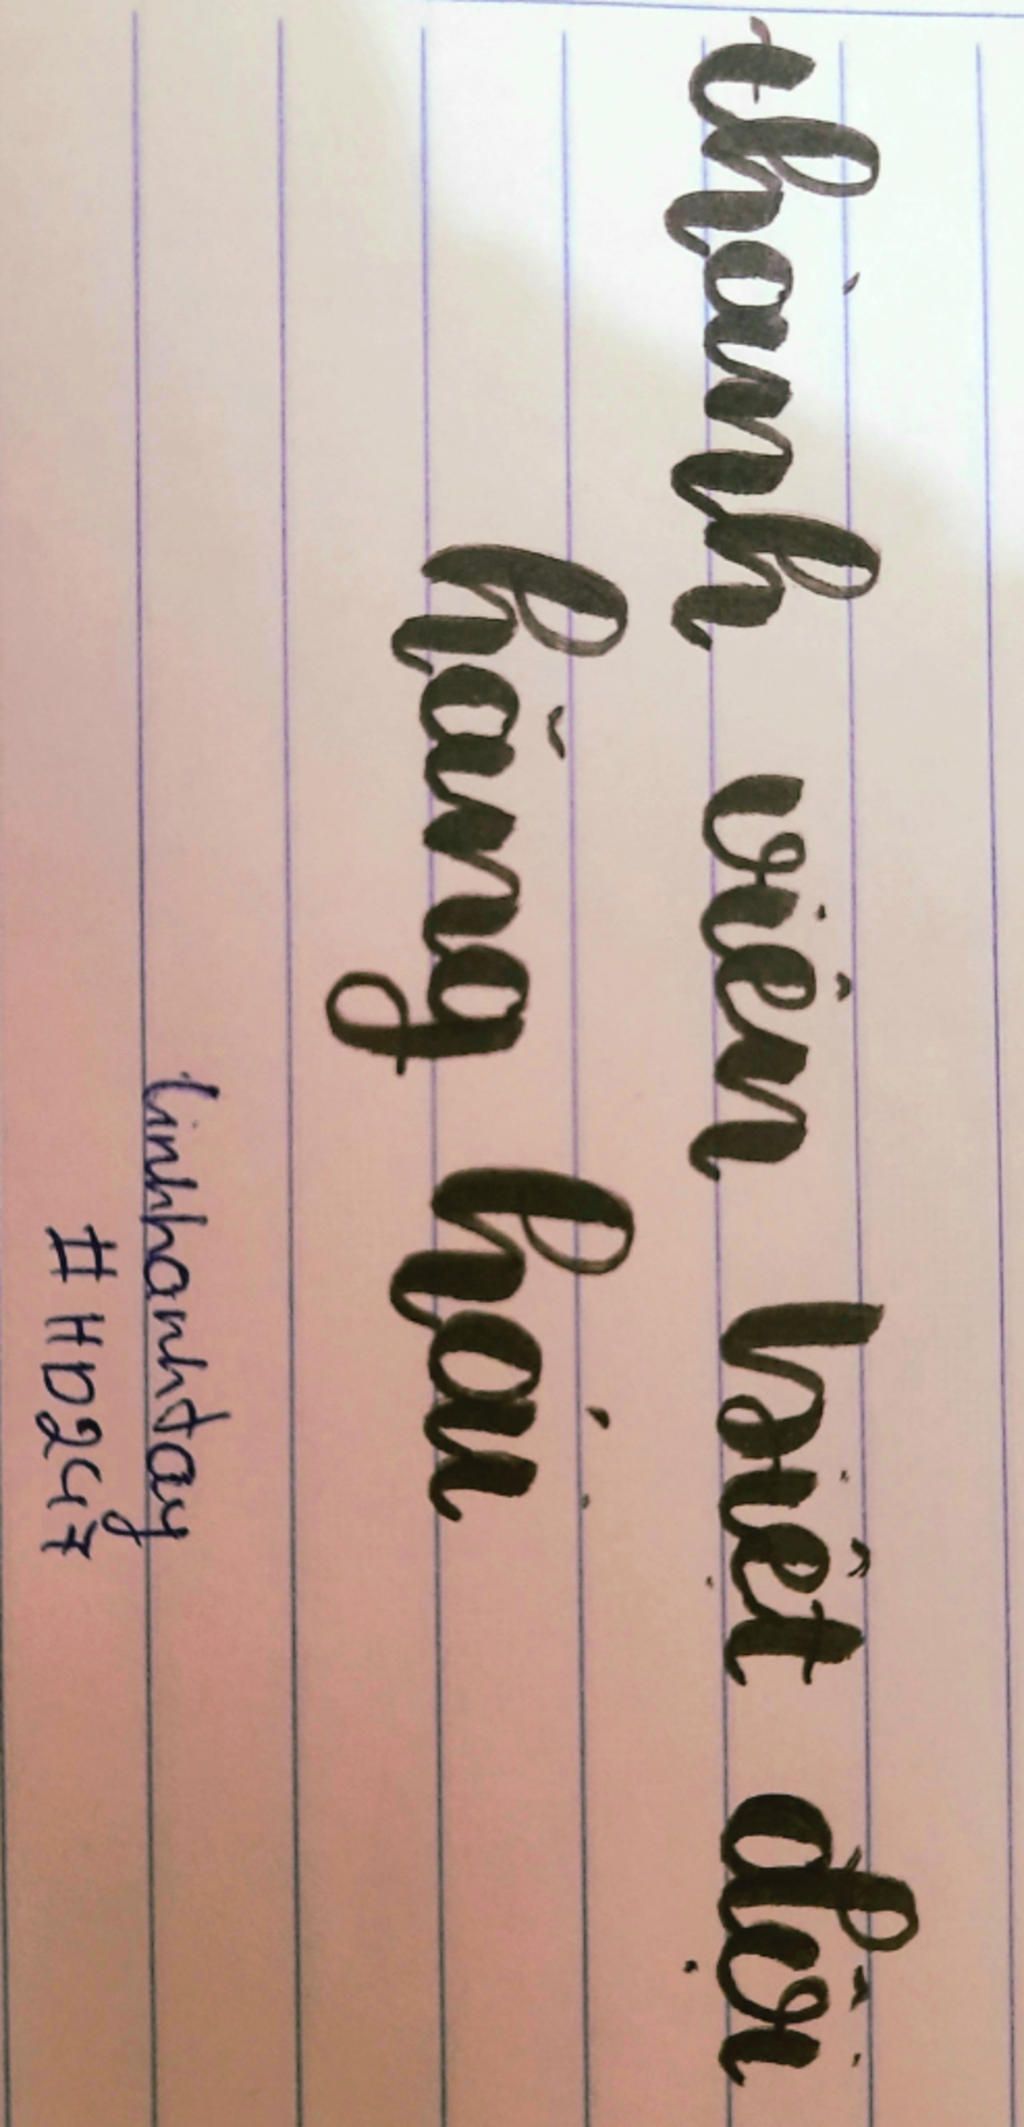 thành viên biệt đội
hăng hái
linhhanhtay
#HD247